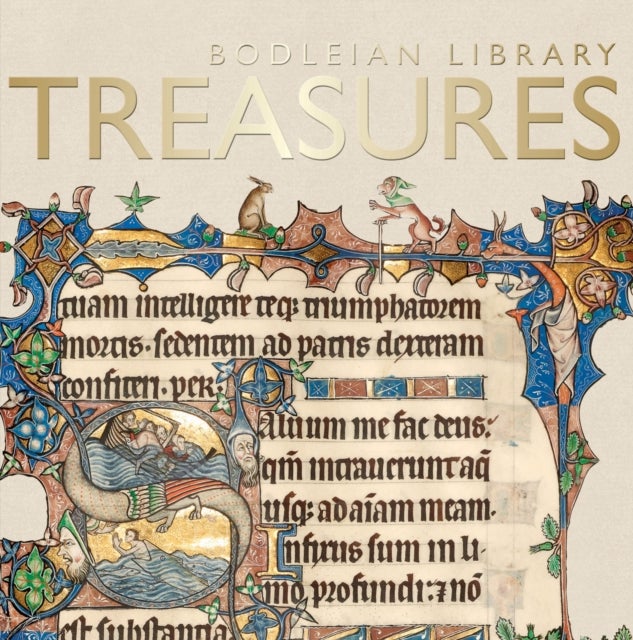 BODLEIAN LIBRARY
TREASURES
tuam intelligere teq; triumphatorem
mortis. sedentem ad patris dexteram
confiteri. per.
Saluum me fac deus:
qm̅ intrauerunt aq̅
usq; ad ai̅am meam.
Infixus sum in li-
mo profundi: ⁊ no̅
est substantia